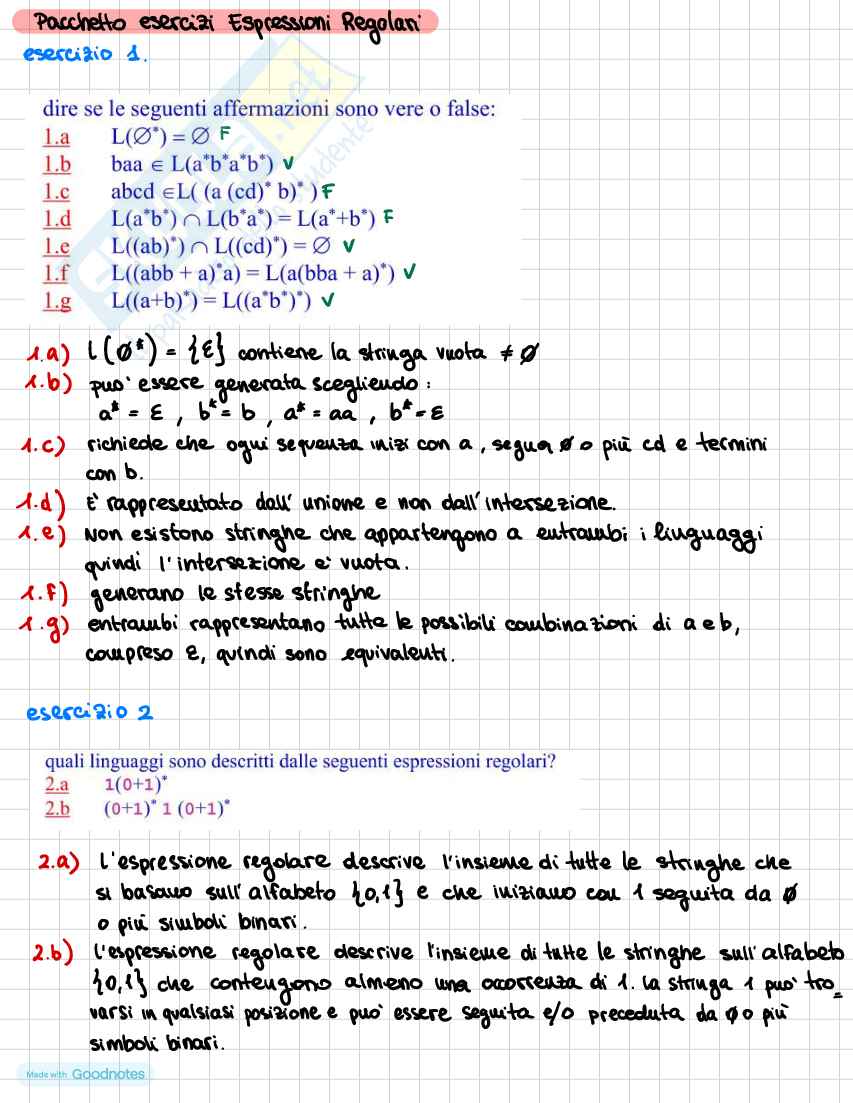 Pacchetto esercizi Espressioni Regolari
esercizio 1.
dire se le seguenti affermazioni sono vere o false:
1.a L(∅*) = ∅ F
1.b baa ∈ L(a*b*a*b*) V
1.c abcd ∈L( (a (cd)* b)* ) F
1.d L(a*b*) ∩ L(b*a*) = L(a*+b*) F
1.e L((ab)*) ∩ L((cd)*) = ∅ V
1.f L((abb + a)*a) = L(a(bba + a)*) V
1.g L((a+b)*) = L((a*b*)*) V
1.a) L(∅*) = {ε} contiene la stringa vuota ≠ ∅
1.b) puo' essere generata scegliendo:
a* = ε , b* = b , a* = aa , b* = ε
1.c) richiede che ogni sequenza inizi con a, segua ∅ o più cd e termini
con b.
1.d) E' rappresentato dall' unione e non dall'intersezione.
1.e) Non esistono stringhe che appartengono a entrambi i linguaggi
quindi l'intersezione e' vuota.
1.f) generano le stesse stringhe
1.g) entrambi rappresentano tutte le possibili combinazioni di a e b,
compreso ε, quindi sono equivalenti.
esercizio 2
quali linguaggi sono descritti dalle seguenti espressioni regolari?
2.a 1(0+1)*
2.b (0+1)* 1 (0+1)*
2.a) l'espressione regolare descrive l'insieme di tutte le stringhe che
si basano sull' alfabeto {0,1} e che iniziano con 1 seguita da ∅
o più simboli binari.
2.b) l'espressione regolare descrive l'insieme di tutte le stringhe sull'alfabeto
{0,1} che contengono almeno una occorrenza di 1. la stringa 1 puo' tro_
varsi in qualsiasi posizione e puo' essere seguita e/o preceduta da ∅ o più
simboli binari.
Made with Goodnotes